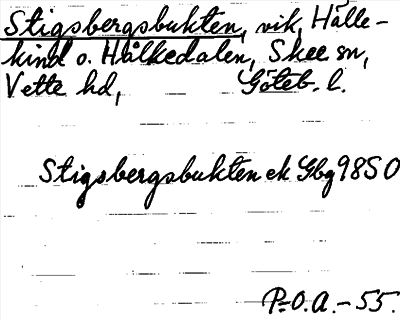 Stigsbergsbukten, vik, Hälle-
kind o. Hålkedalen, Skee sn,
Vette hd, Göteb. l.
Stigsbergsbukten ek Gbg 98SO
P.O.A. - 55.